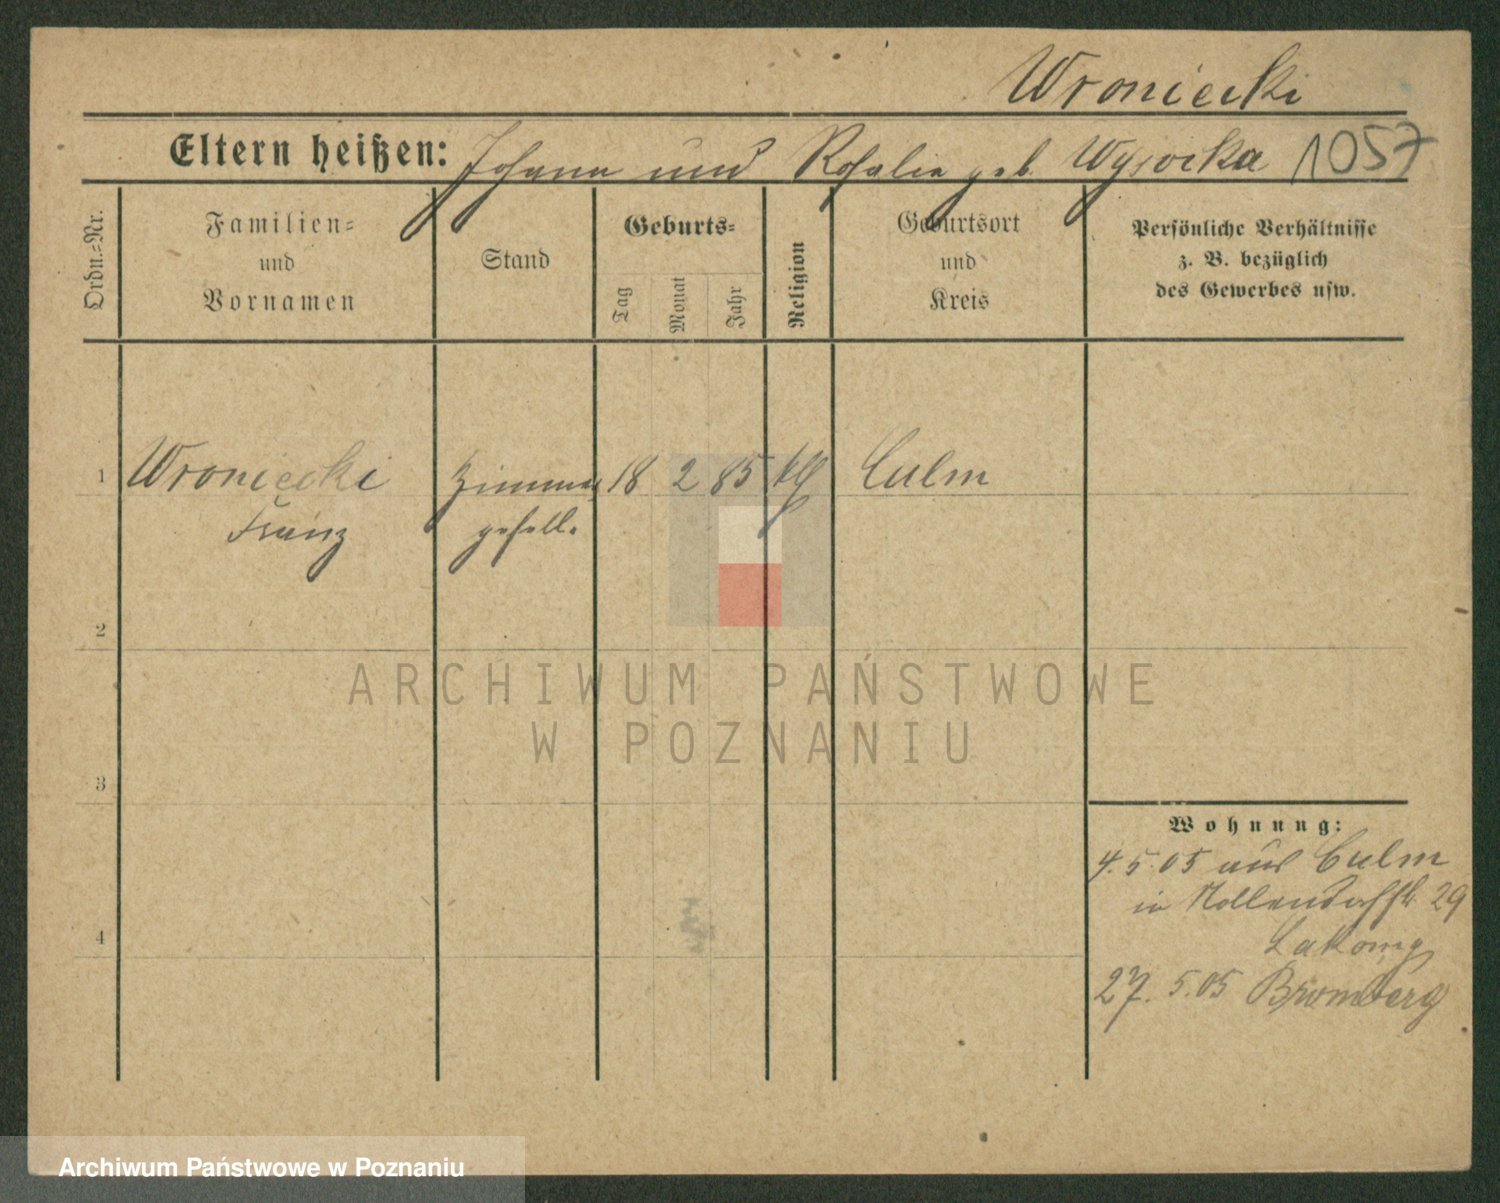 Wroniecki
Eltern heißen: Johann und Rosalie geb. Wysocka 1057
Ordn.-Nr.
Familien-
und
Vornamen
Stand
Geburts-
Tag
Monat
Jahr
Religion
Geburtsort
und
Kreis
Persönliche Verhältnisse
z. B. bezüglich
des Gewerbes usw.
1 Wroniecki Zimmer 18 2 85 kth Culm
Franz gesell.
2
3
4
Wohnung:
4.5.05 aus Culm
in Nollendorfstr 29
27. 5.05 Bromberg
ARCHIWUM PAŃSTWOWE
W POZNANIU
Archiwum Państwowe w Poznaniu